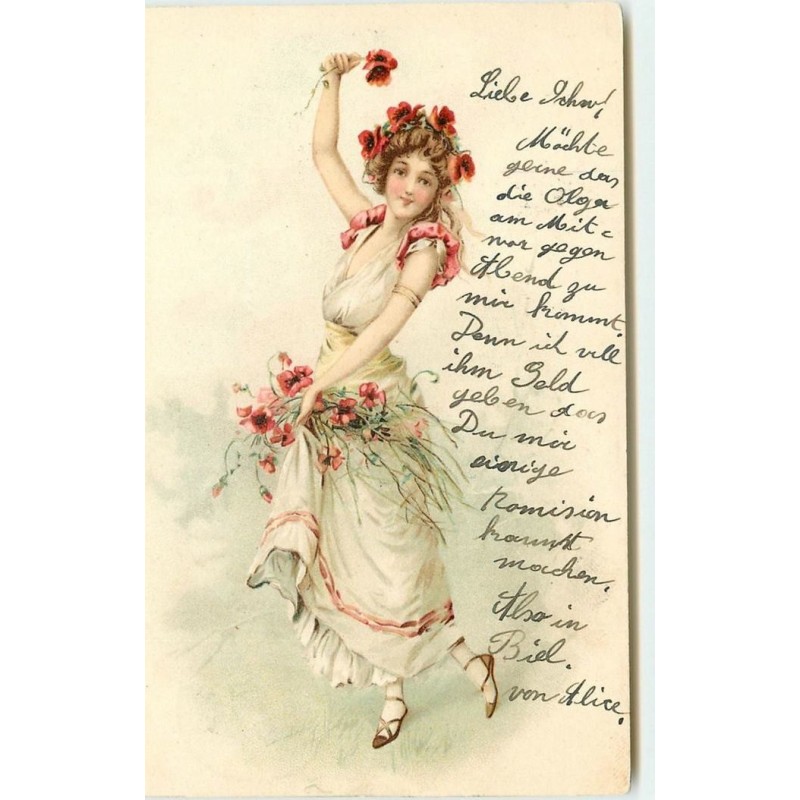 Liebe Schw!
Möchte
gerne das
die Olga
am Mit-
war gegen
Abend zu
mir kommt.
Denn ich will
ihm Geld
geben das
Du mir
einige
Komision
kannst
machen.
Also in
Biel.
von Alice.